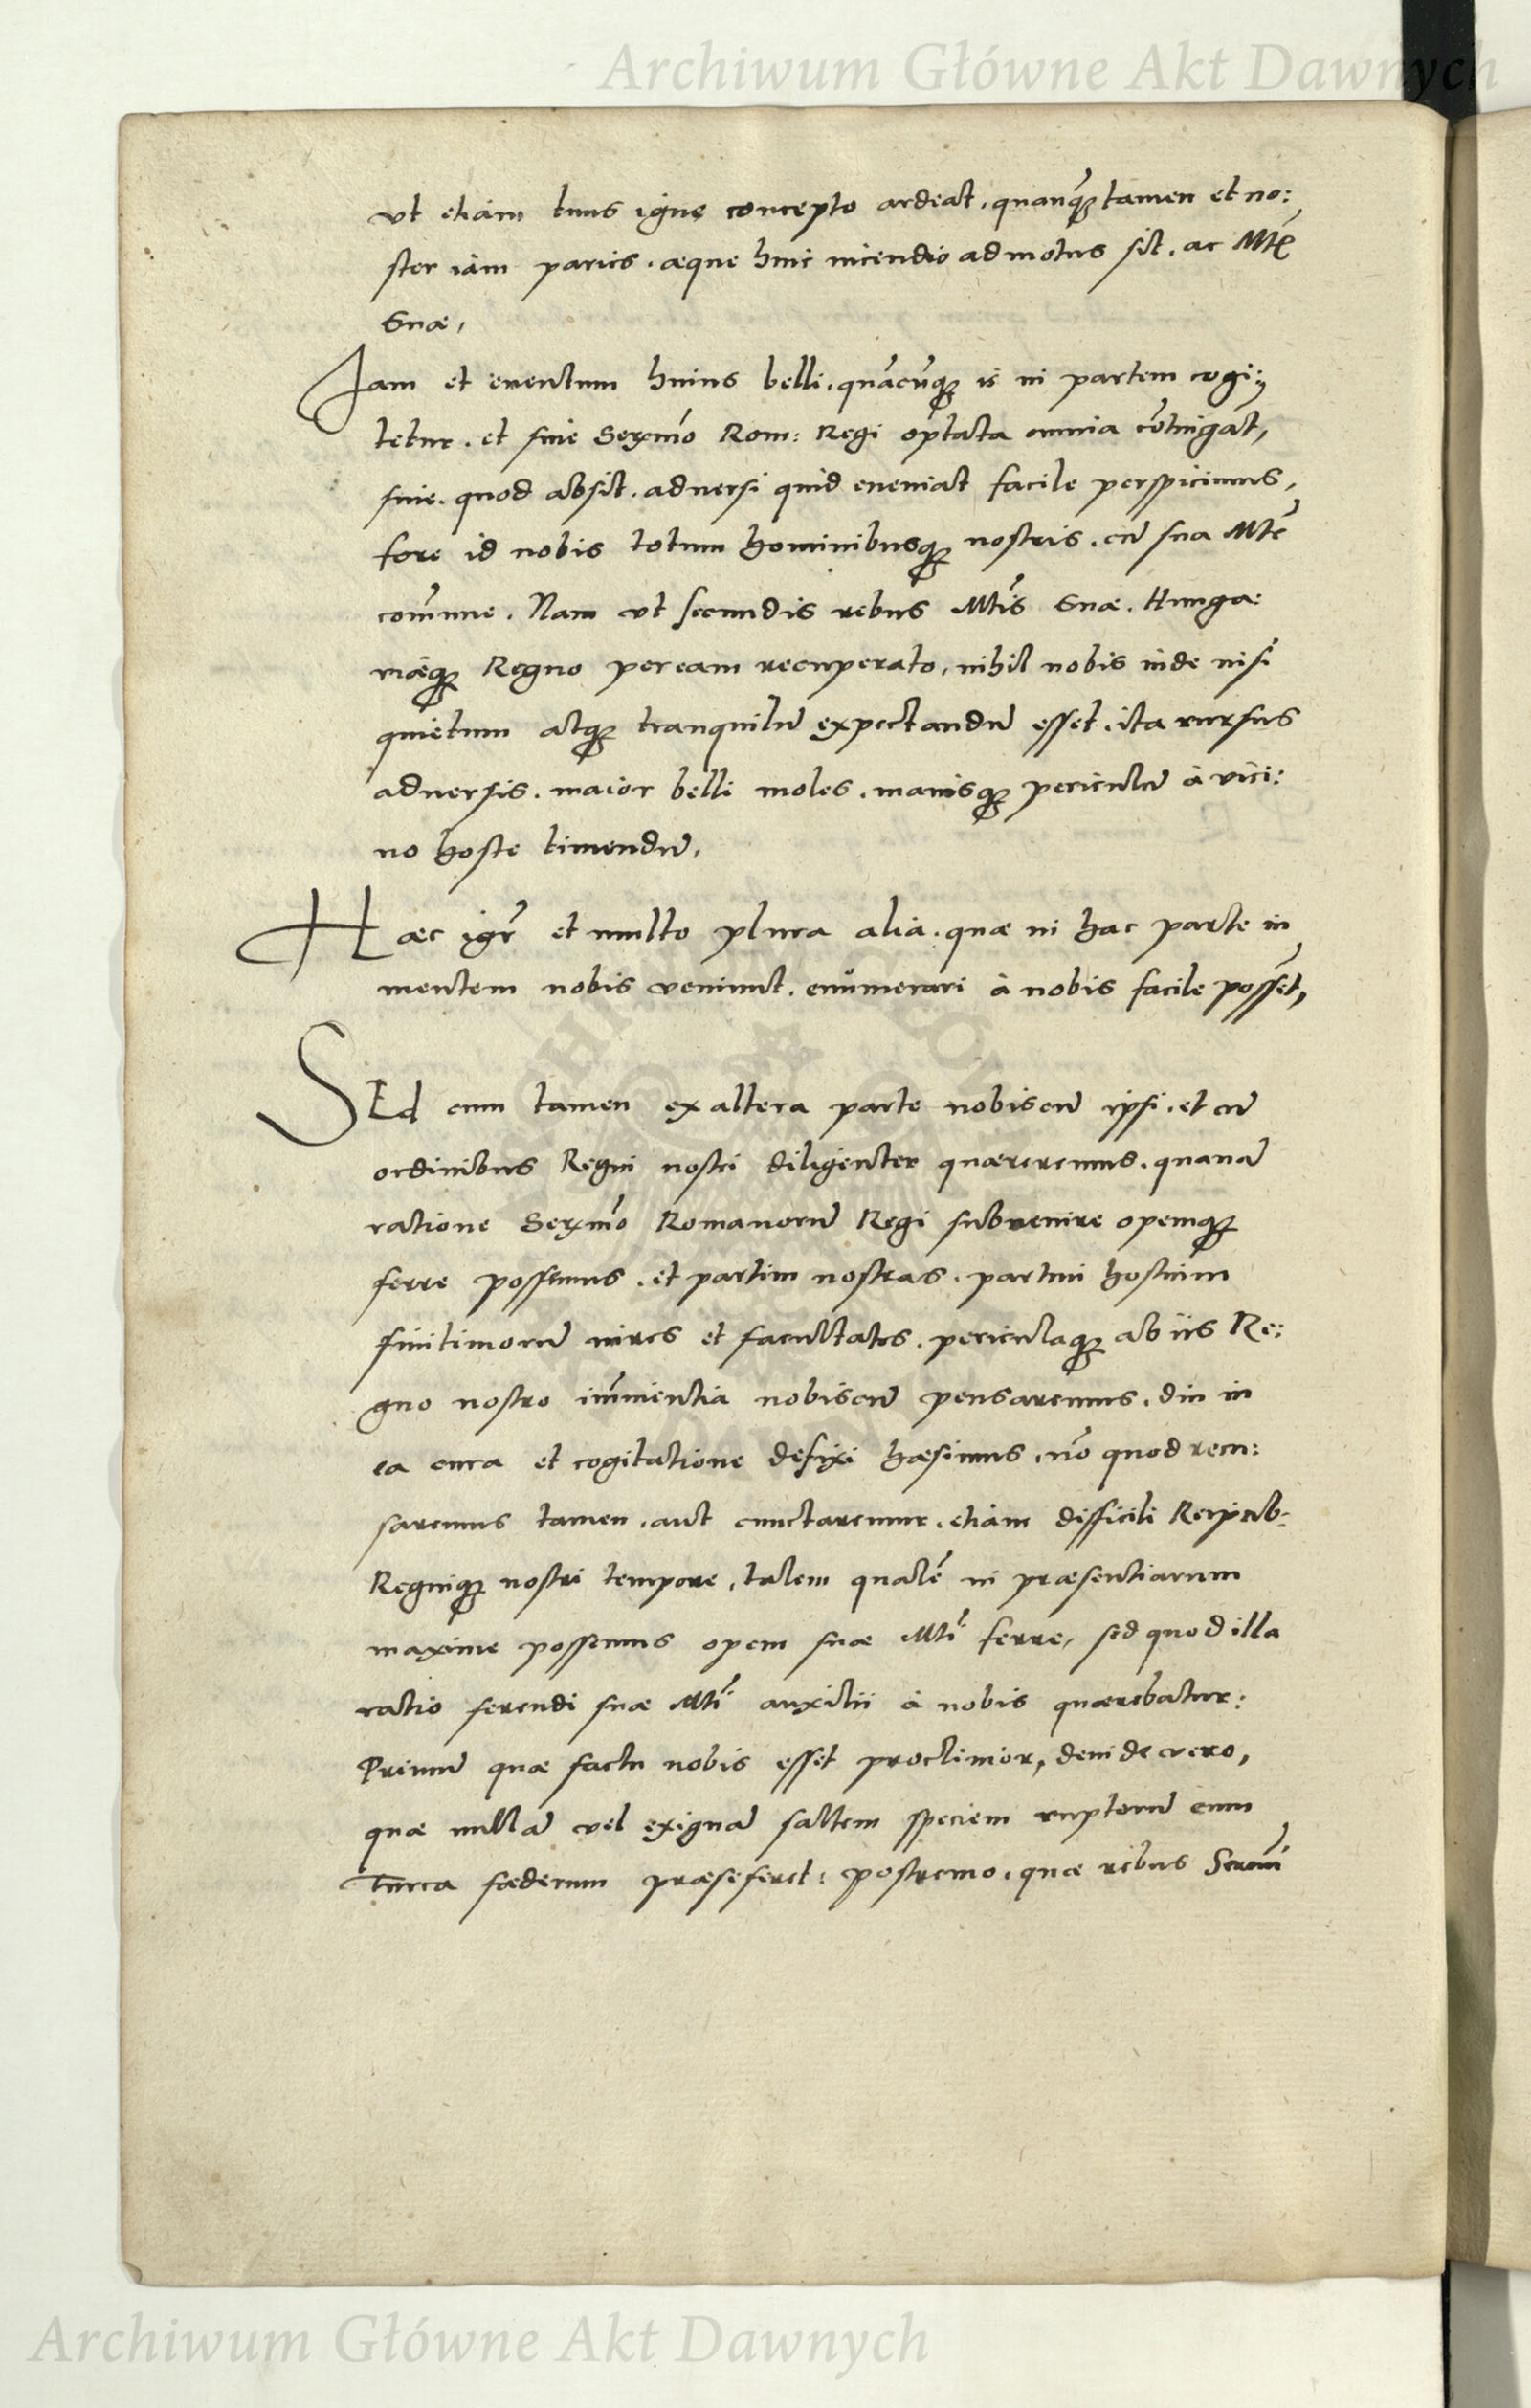 Archiwum Główne Akt Dawnych
vt etiam tuus igne concepto ardeat, quanq̃ꝫ tamen et no:
ster iam paries, æque huic incendio admotus sit, ac Mtẽ
Suæ,
Jam et euentum huius belli, quãcũqꝫ is in partem cogi:
tetur, et siue Serᵐᵒ Rom: Regi optata omnia cõtingãt,
siue, quod absit, aduersi quid eueniat facile perspicimus,
fore id nobis totum hominibusqꝫ nostris, cũ sua Mtẽ
com̃une. Nam vt secundis rebus Mtĩs Suæ, Hunga:
riæqꝫ Regno per eam recuperato, nihil nobis inde nisi
quietum atqꝫ tranquilũ expectandũ esset, ita rursus
aduersis, maior belli moles, maiusqꝫ periculũ à vici:
no hoste timendũ,
Hæc igr̃ et multo plura alia, quæ in hac parte in
mentem nobis veniunt, enumerari à nobis facile possẽt,
SEd cum tamen ex altera parte nobiscũ ipsi, et cũ
ordinibus Regni nostri diligenter quæreremus, quanã
ratione Serᵐᵒ Romanorũ Regi subuenire opemqꝫ
ferre possemus, et partim nostras, partim hostium
finitimorũ uires et facultates, periculaqꝫ ab iis Re:
gno nostro im̃inentia nobiscũ pensaremus, diu in
ea cura et cogitatione defixi hæsimus, nõ quod recu:
saremus tamen, aut cunctaremur, etiam difficili Reipub:
Regniqꝫ nostri tempore, talem qualẽ in præsentiarum
maxime possemus opem suæ Mtĩ ferre, sed quod illa
ratio ferendi suæ Mtĩ auxilii à nobis quærebatur:
Primũ quæ factu nobis esset procliuior, deinde vero,
quæ nullã vel exiguã saltem speciem ruptorũ cum
Turca fœderum præseferet: postremo, quæ rebus Serenᵐⁱ
Archiwum Główne Akt Dawnych